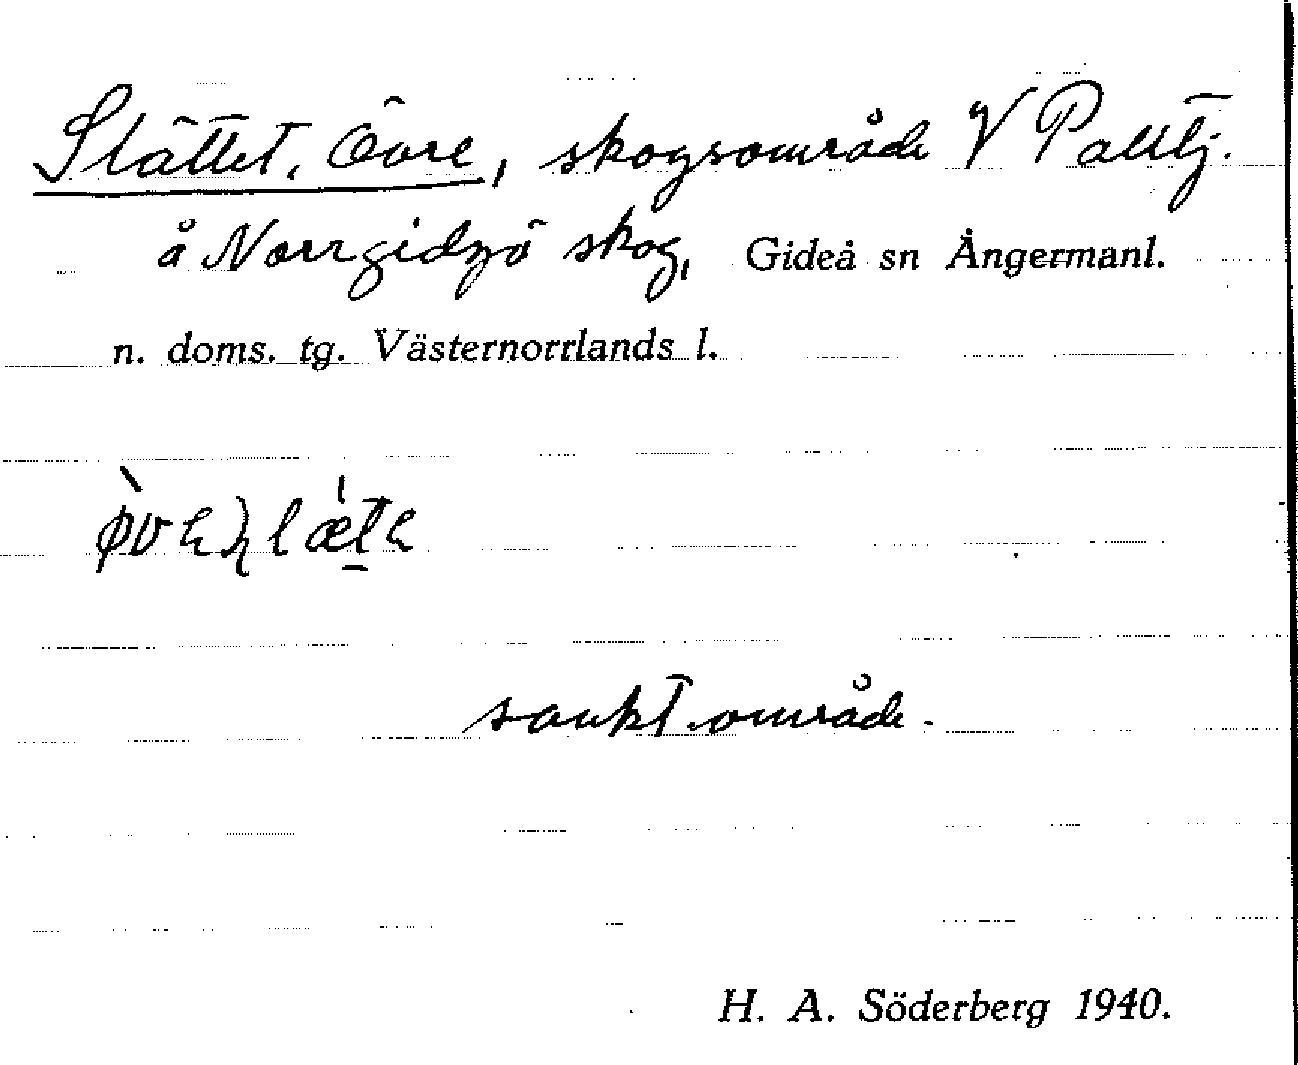 Slättet, Övre, skogsområde V Palltj.
å Norrgidsjö skog, Gideå sn Ångermanl.
n. doms. tg. Västernorrlands l.
sankt område.
H. A. Söderberg 1940.